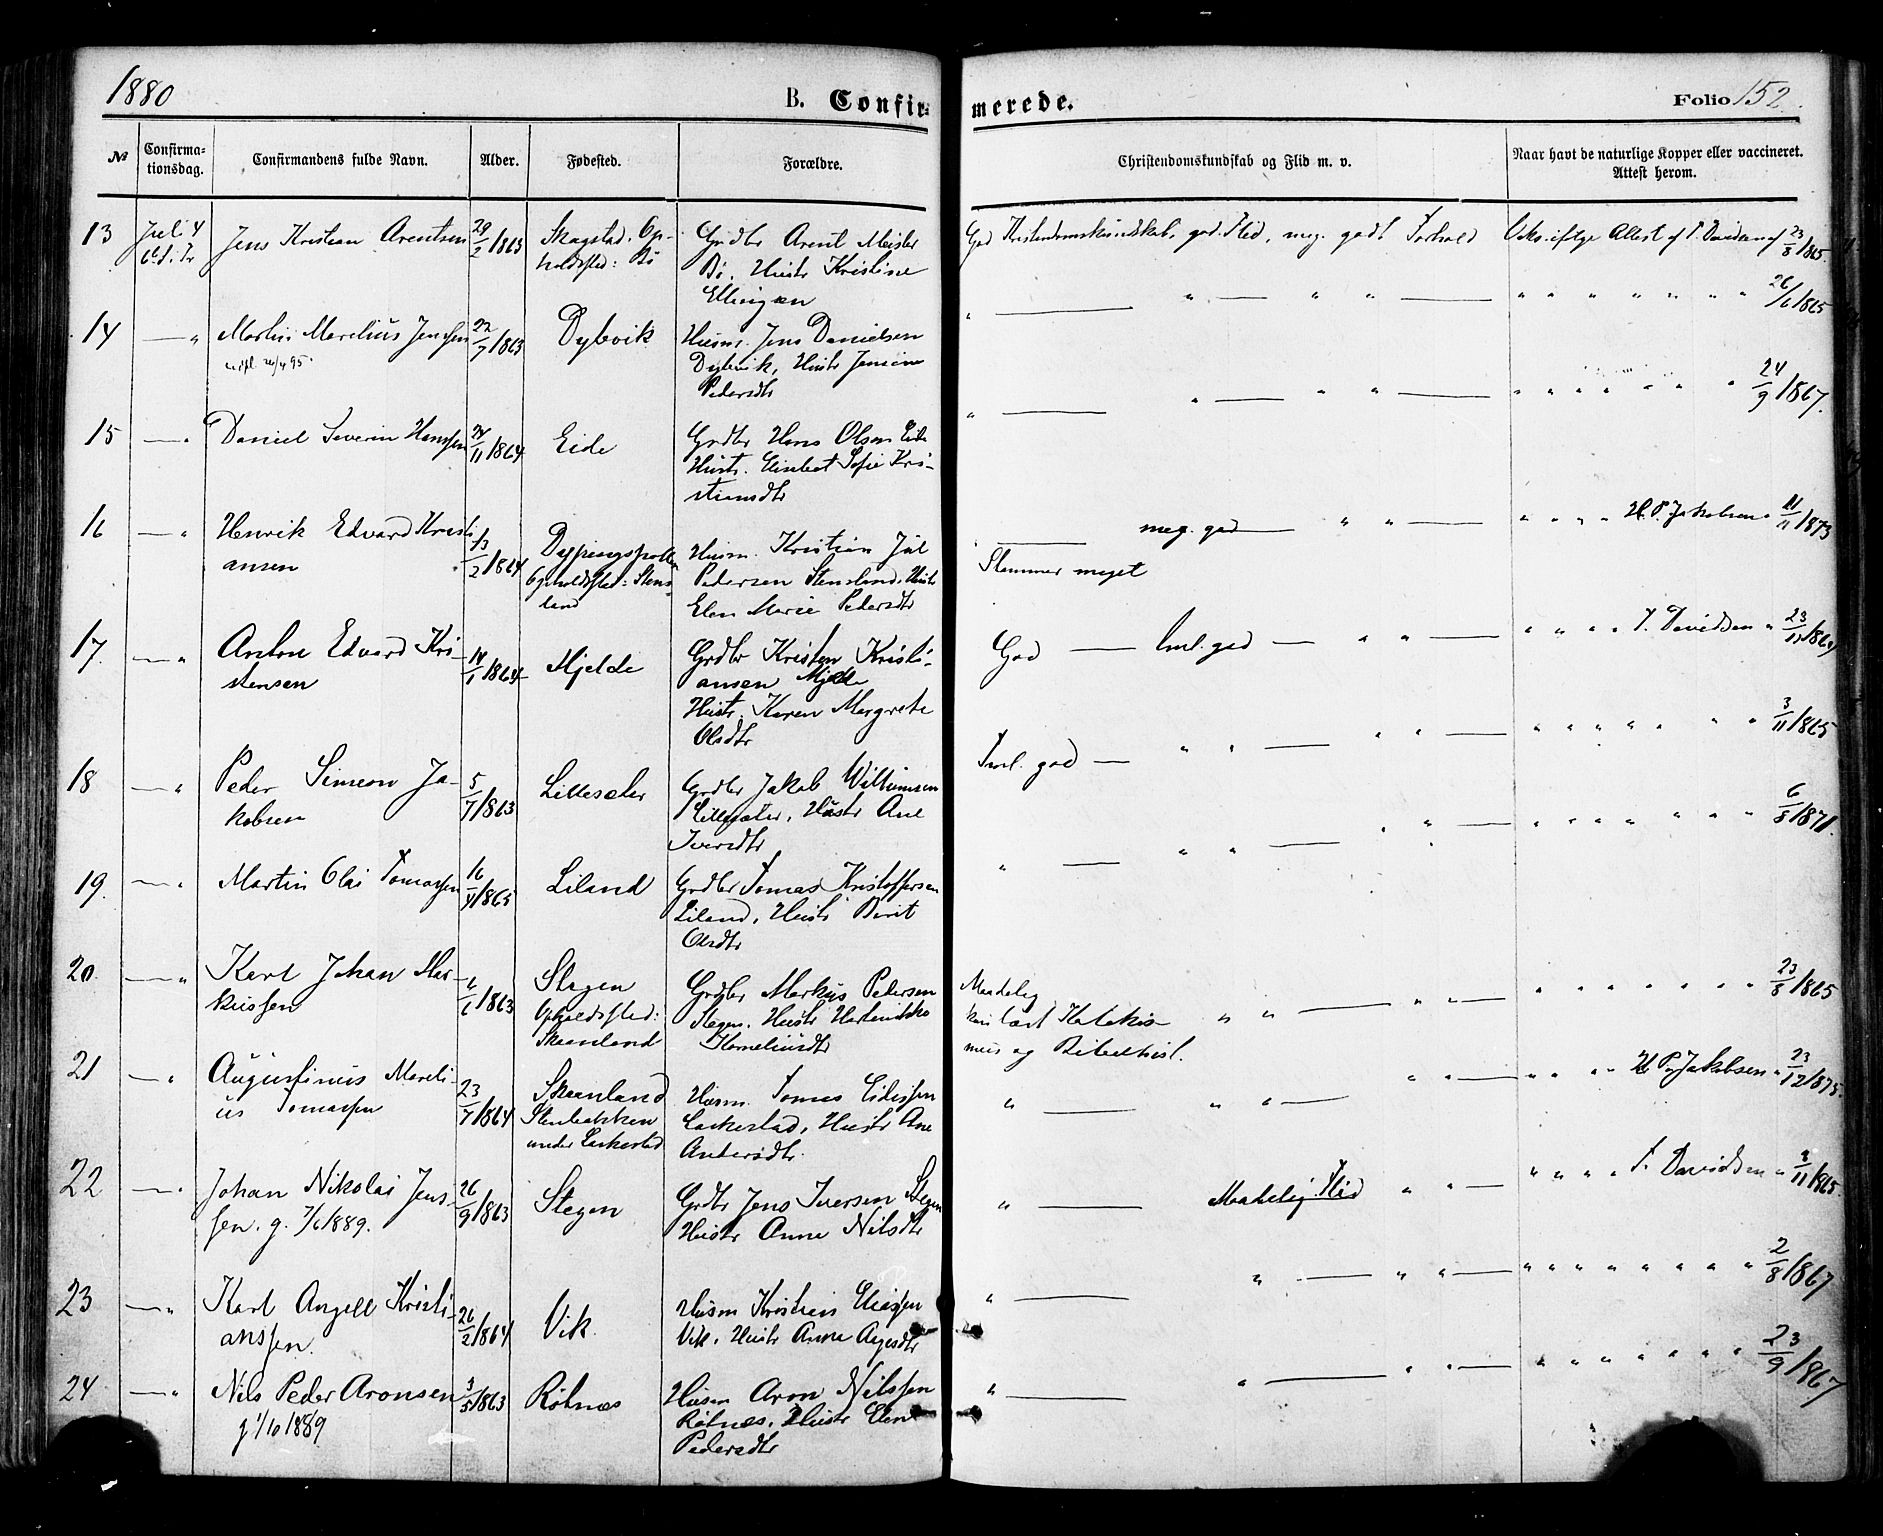 1880
B. Confir-
merede.
Folio 152.
№
Confirma-
tionsdag.
Confirmandens fulde Navn.
Alder.
Fødested.
Forældre.
Christendomskundskab og Flid m. v.
Naar havt de naturlige Kopper eller vaccineret.
Attest herom.
13
Juli 4
6 S. i. Tr
Jens Kristian Arentsen
29/2 1863
Skagstad. Op-
holdssted: Bö
Grdbr Arent Meister
Bö. Hustr Kristine
Ellingsen
God Kristendomskundskab, god Flid, meg. godt Forhold
Attest af P. Davidsen af 23/8 1865.
14
— "
Martin Marelius Jenssen
22/7 1863
Dybvik
Husm. Jens Danielsen
Dybvik, Hustr Jensine
Pedersdtr
" — " — " " —
" " " " " " " 26/6 1865
15
— "
Daniel Severin Hanssen
24/11 1864
Eide
Grdbr Hans Olsen Eide
Hustr. Elisabet Sofie Kri-
stiansdtr
" — " — " " —
" " " " " " " 24/9 1867.
16
— "
Henrik Edvard Kristi
ansen
13/2 1864
Dypingspollen
Opholdssted: Stens-
land
Husm. Kristian Jül
Pedersen Stensland, Hustr
Elen Marie Pedersdtr
" — meg. god — " " —
Stammer meget
" " " " H. P. Jakobsen " 11/11 1873
17
— "
Anton Edvard Kri-
stensen
14/1 1864
Mjelde
Grdbr Kristen Kristi-
ansen Mjelde
Hustr. Karen Margrete
Olsdtr
God — Tml. god — " " —
" " " " P. Davidsen "
18
— "
Peder Simeon Ja-
kobsen
5/7 1863
Lilleseter
Grdbr Jakob Villumsen
Lilleseter, Hustr Ane
Iversdtr
Tml. god — " " — " " —
" " " " " " " 3/11 1865
19.
— "
Martin Olai Tomassen
16/4 1865
Liland
Grdbr Tomas Kristoffersen
Liland, Hustr Berit
Olsdtr
" — " " — " " —
" " " " " " " 6/8 1871.
20
— "
Karl Johan Mar-
kussen
6/6 1863
Stegen
Opholdssted:
Skaanland
Grdbr Markus Pedersen
Stegen. Hustr
Korneliusdtr
Maadelig
kun lært Katekis-
mus og Bibelhist.
" " — " " —
" " " " " " " 23/8 1865
21
— "
Augustinus Mareli-
us Tomassen
23/7 1864
Skaanland
Stenbakken
under Laskestad
Husm. Tomas Eilissen
Laskestad, Hustr Ane
Andersdtr.
" — " " — " " —
" " " " H. P. Jakobsen " 23/12 1875.
22
— "
Johan Nikolai Jens-
sen. g. 7/6 1889.
26/9 1863
Stegen
Grdbr Jens Iversen Stegen
Hustr Anne Nilsdtr
" — Maadelig Flid " " —
" " " " P. Davidsen " 3/11 1865.
23
— "
Karl Angell Kristi-
anssen.
26/2 1864
Vik
Husm Kristian Eliassen
Vik, Hustr Anne
" — " — " " —
" " " " " " " " 2/8 1867
24
— "
Nils Peder Aronsen
g 1/10 1889
3/5 1863
Rötnæs
Husm Aron Nilssen
Rötnæs, Hustr Elen
Pedersdtr
" — " — " " —
" " " " " " " 23/9 1867